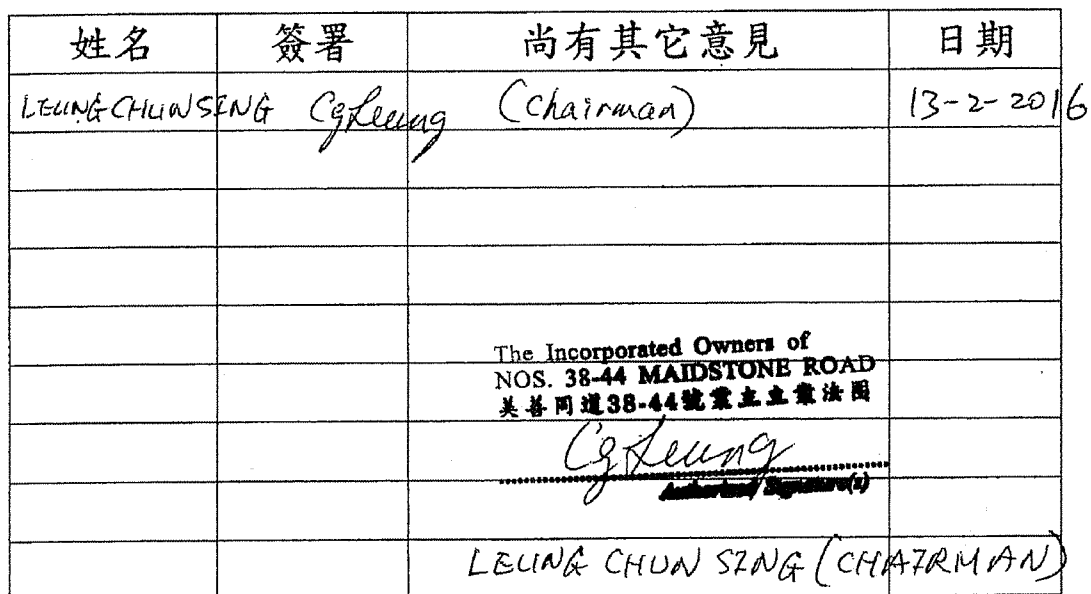 姓名 簽署 尚有其它意見 日期
LEUNG CHUN SING CgLeung (Chairman) 13-2-2016
The Incorporated Owners of
NOS. 38-44 MAIDSTONE ROAD
美善同道38-44號業主立案法團
CgLeung
Authorized Signature(s)
LEUNG CHUN SING (CHAIRMAN)